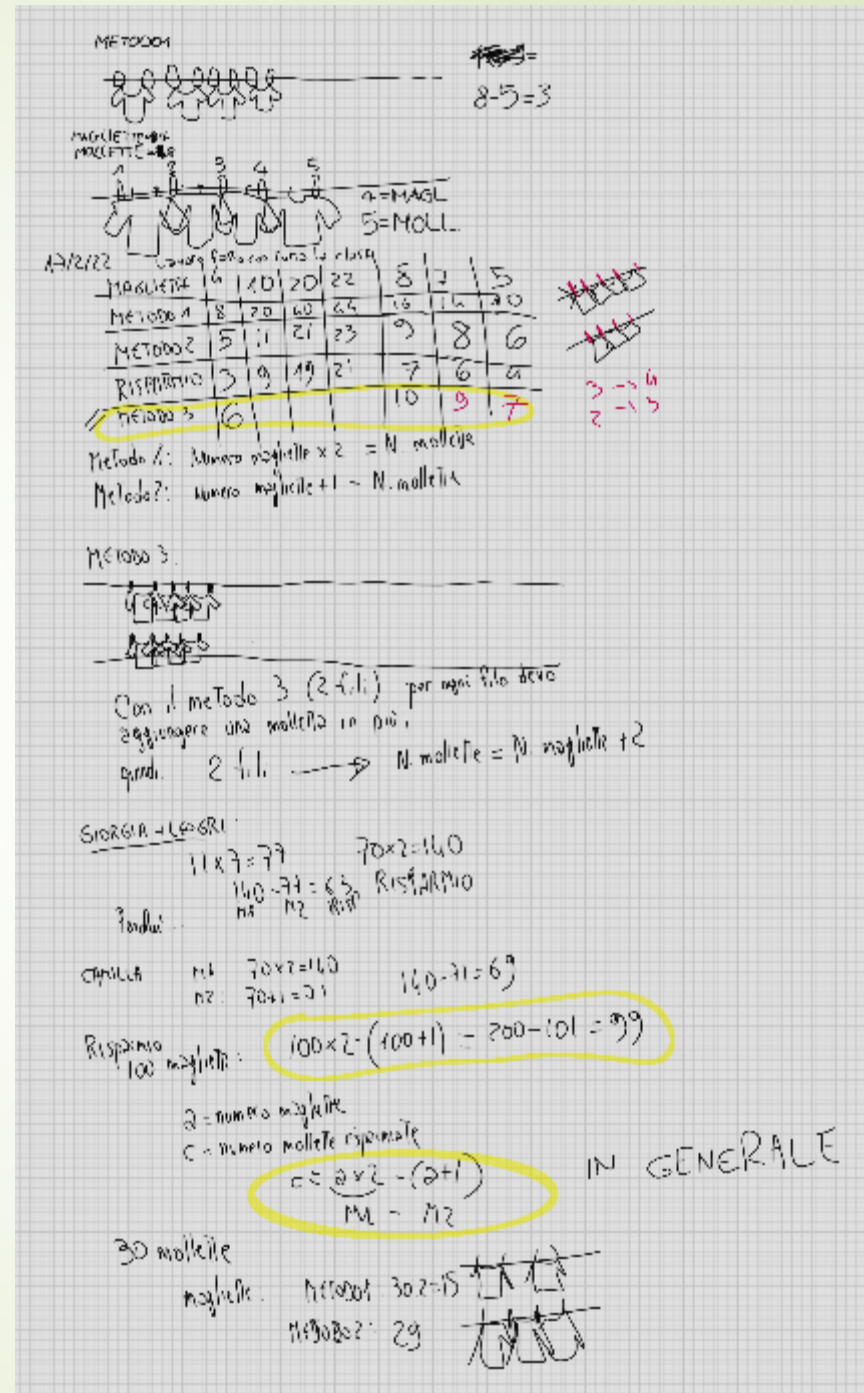 METODO1
8-5=3
MAGLIETTE
MOLLETTE
1 2 3 4 5
4=MAGL
5=MOLL.
17/2/22 con tutta la classe
MAGLIETTE 4 10 20 22 8 7 5
METODO 1 8 20 40 44 16 14 10
METODO 2 5 11 21 23 9 8 6
RISPARMIO 3 9 19 21 7 6 4
METODO 3 6 10 9 7
3 → 4
2 → 3
Metodo 1: Numero magliette x 2 = N. mollette
Metodo 2: Numero magliette + 1 = N. mollette
METODO 3.
Con il metodo 3 (2 fili) per ogni filo devo
aggiungere una molletta in più,
quindi 2 fili → N. mollette = N. magliette +2
GIORGIA
11x7=77 70x2=140
140-77=63 RISPARMIO
M1 M2 RISP
CAMILLA M1 70x2=140 140-71=69
M2: 70+1=71
Risparmio
100 magliette: 100x2-(100+1) = 200-101=99
a = numero magliette
c = numero mollette risparmiate
c = a x 2 - (a+1) IN GENERALE
M1 - M2
30 mollette
magliette: METODO1: 30:2=15
METODO2: 29